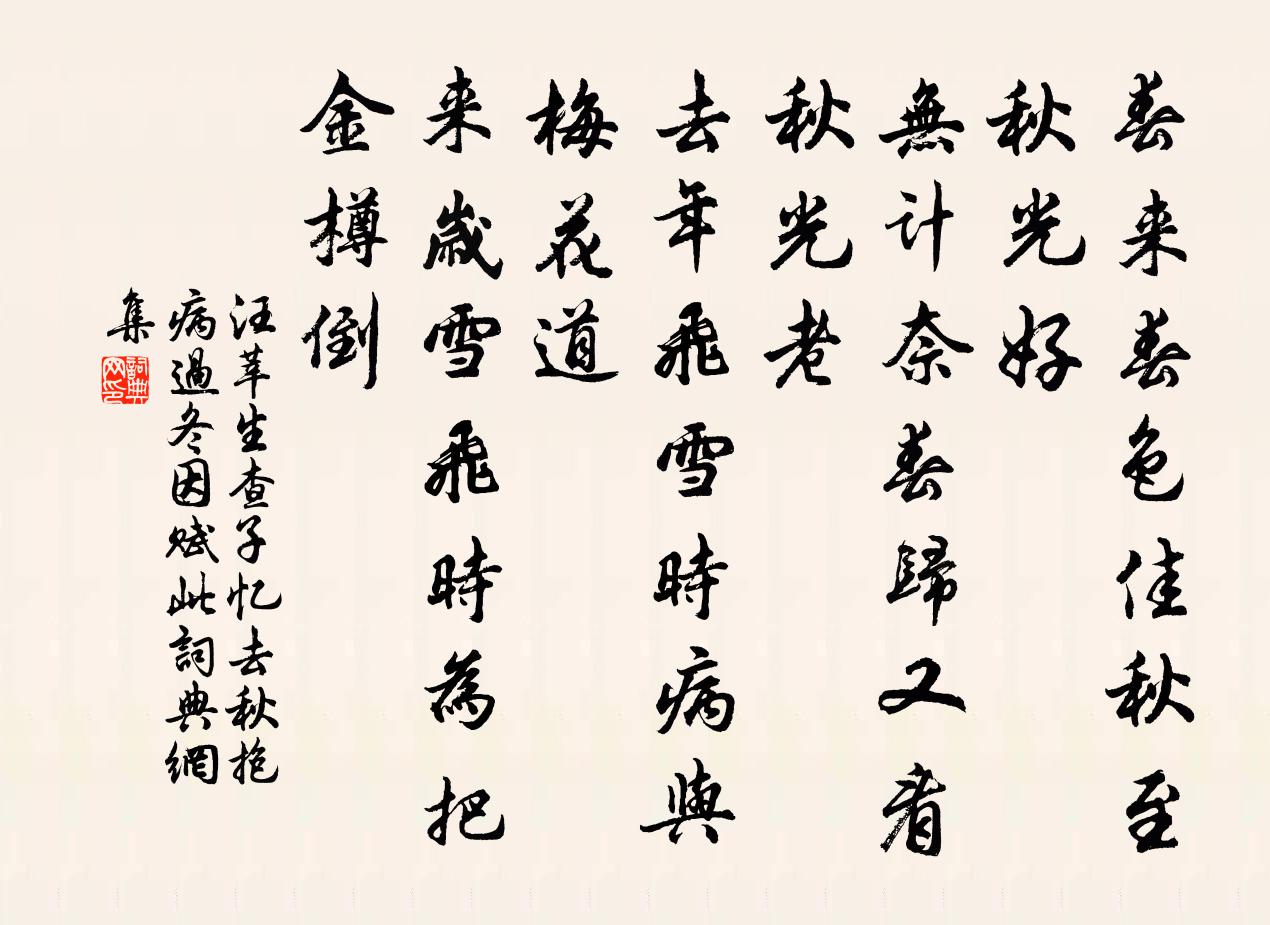 春来春色佳秋至
秋光好
無计奈春歸又看
秋光老
去年飛雪時病與
梅花道
来歲雪飛時為把
金樽倒
汪莘生查子忆去秋抱
病過冬因赋此詞典網
集
詞典
网印